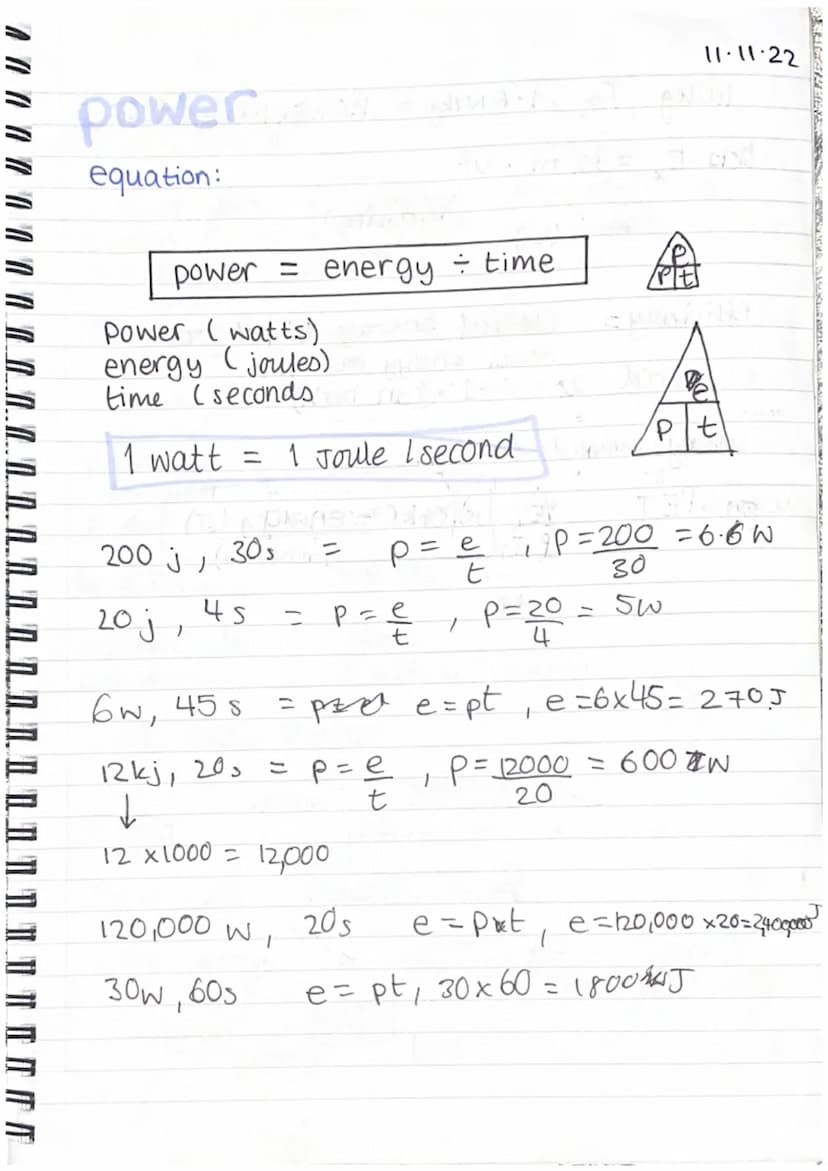 11.11.22
power
equation:
power = energy ÷ time
p
p t
power (watts)
energy (joules)
time (seconds
e
p t
1 watt = 1 Joule /second
200 j, 30s = p = e/t, p = 200/30 = 6.6 W
20j, 4s = p = e/t, p = 20/4 = 5w
6w, 45s = e = pt, e = 6x45 = 270J
12kj, 20s = p = e/t, p = 12000/20 = 600 W
↓
12 x1000 = 12,000
120,000 w, 20s e = pxt, e = 120,000 x20 = 2,400,000J
30w, 60s e = pt, 30x60 = 1800 J